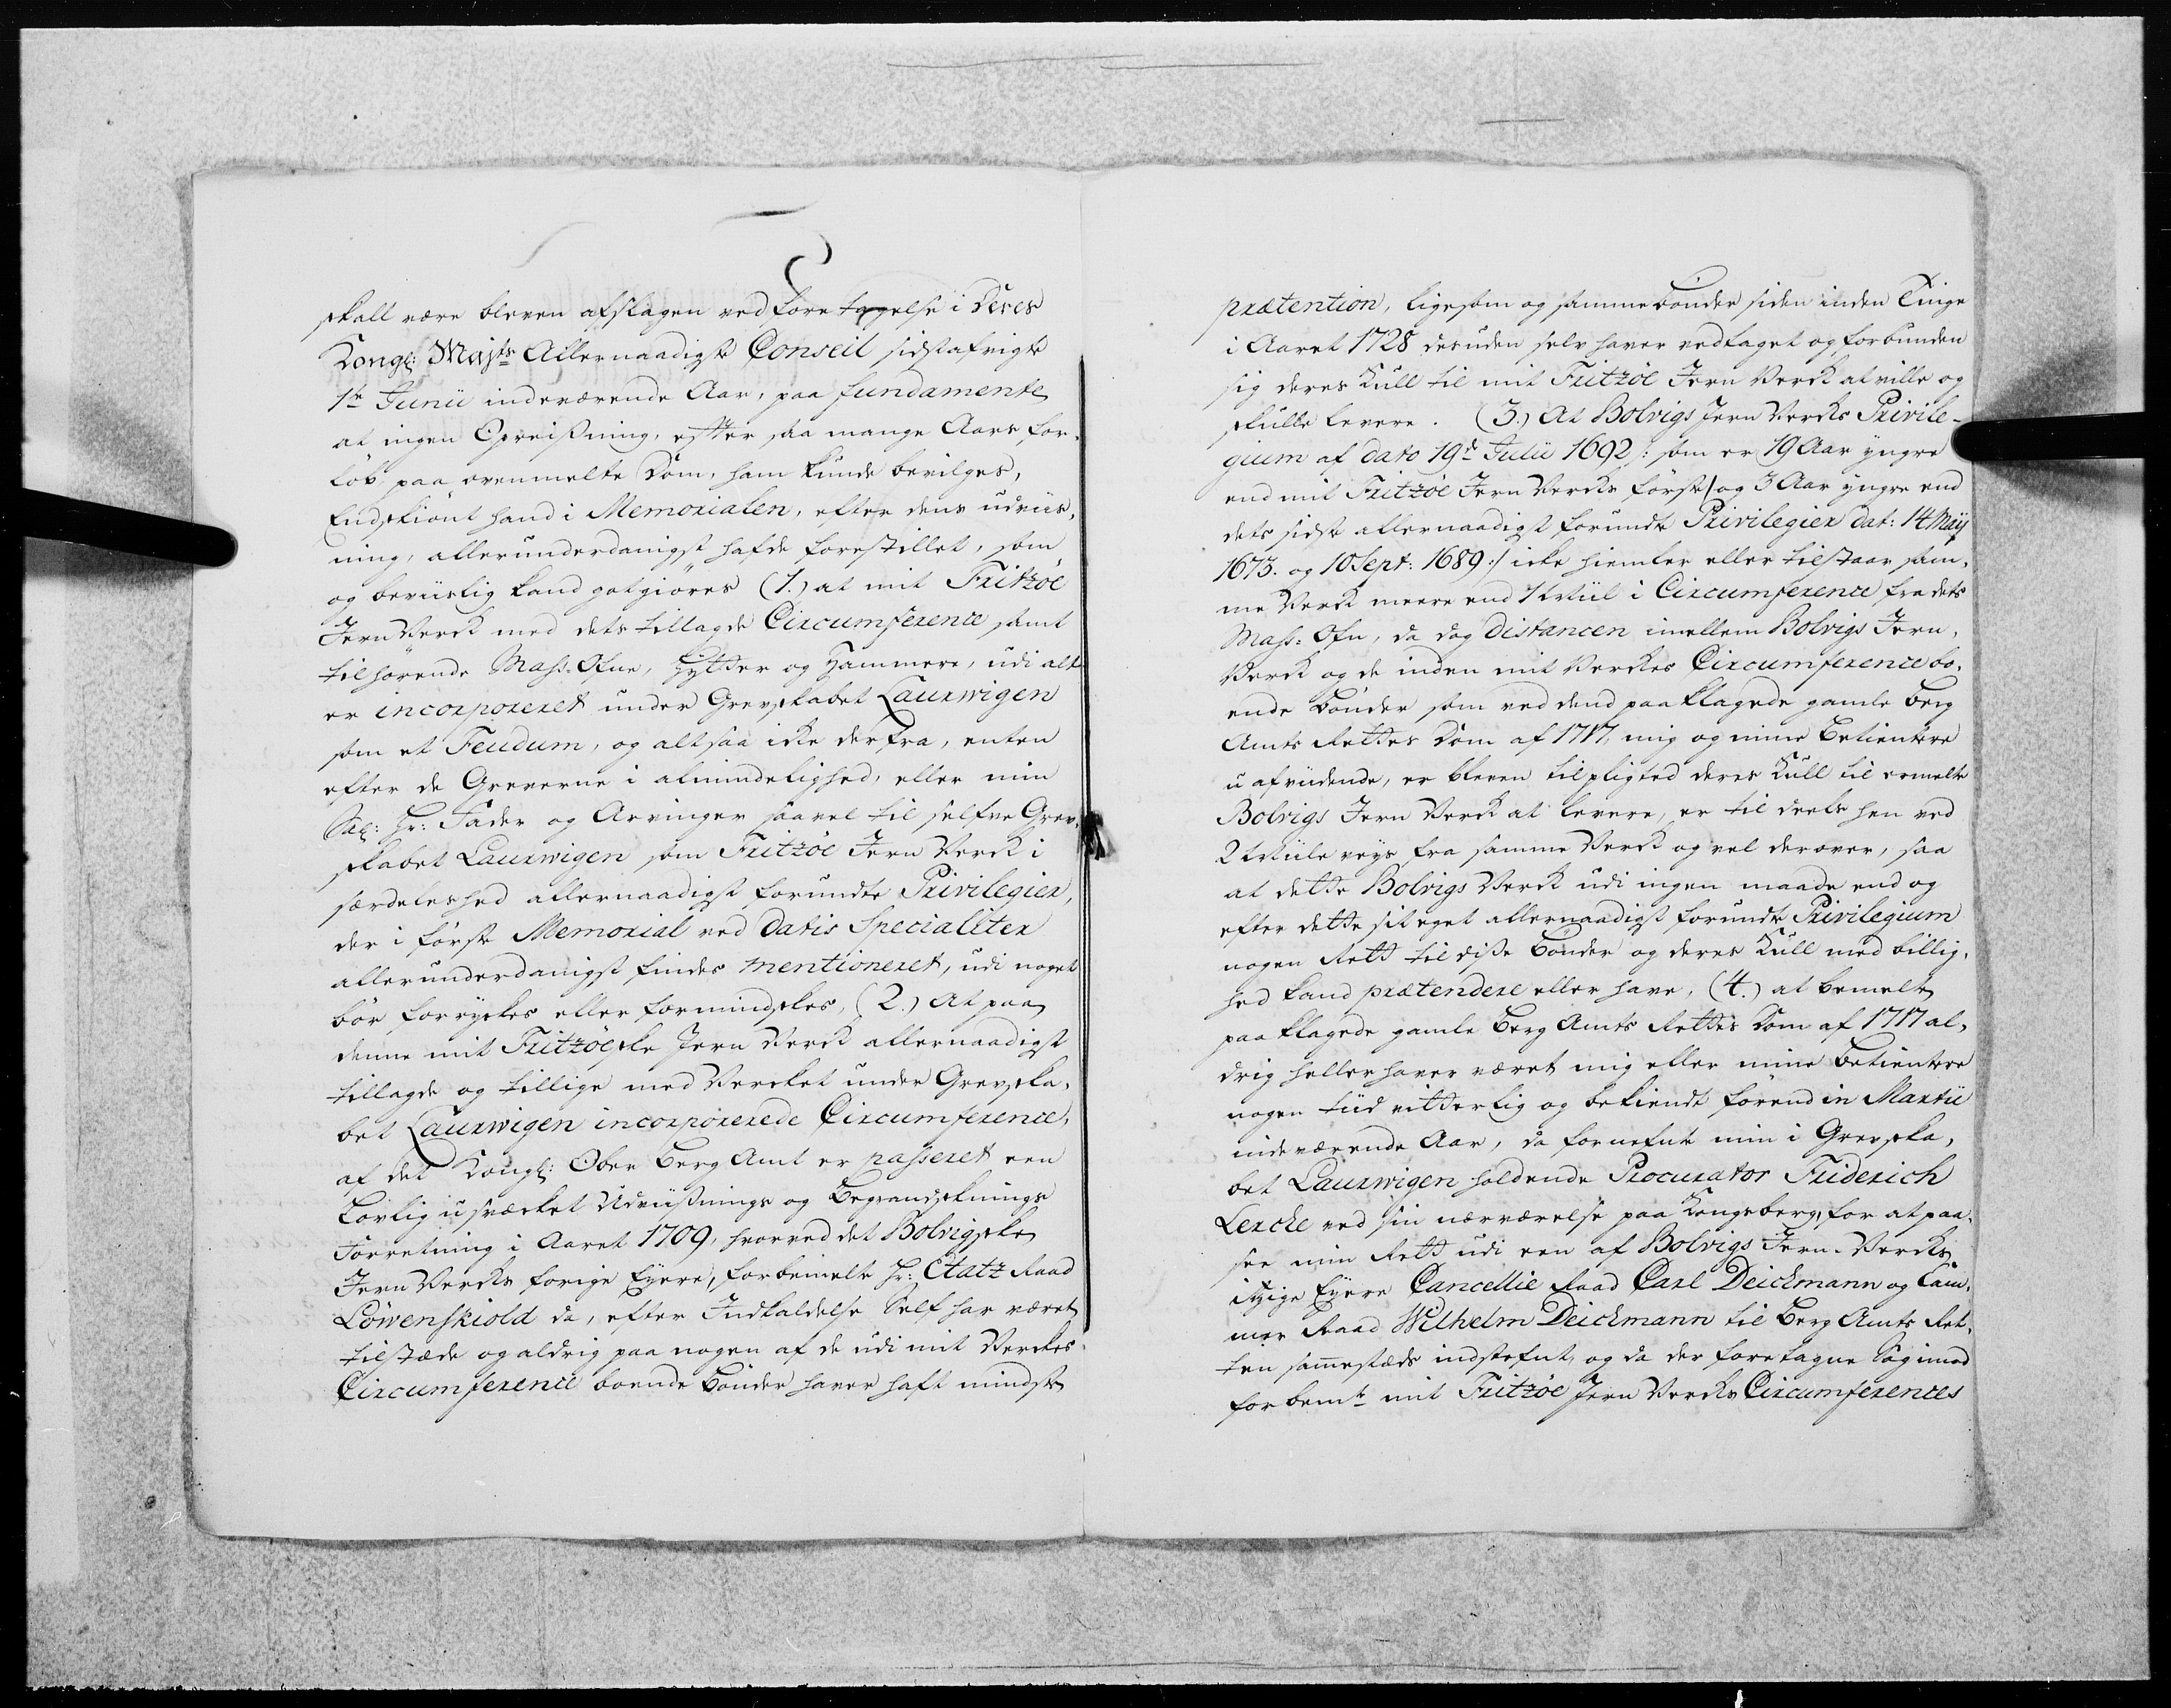 skall være bleven afslagen ved fore tagelse i Deres
Kongl: Majts Allernaadigste Conseil sidstafvigte
1te Junii indeværende Aar, paa fundamente
at ingen Opreisning, efter saa mange Aars for-
løb paa ovenmelte Dom, ham kunde bevilges,
Endskiønt hand i Memorialen, efter dens udviis-
ning, allerunderdanigst hafde forestillet, som
og beviislig kand gotgiøres (1.) at mit Fritzöe
Jern Verck med dets tillagde Circumference samt
tilhørende Mass: Ofne, Hytter og Hammere, udi alt
er incorporeret under Grevskabet Laurwigen
som et Feudum, og altsaa icke derfra, enten
efter de Greverne i almindelighed, eller min
Sal: Hr: Fader og Arvinger saavel til selfve Grev-
skabet Laurwigen som Fritzöe Jern Verck i
særdeleshed allernaadigst forundte Privilegier,
der i første Memorial ved Datis Specialiter
allerunderdanigst findes mentioneret, udi noget
bør forryckes eller formindskes, (2.) At paa
denne mit Fritzöeske Jern Verck allernaadigst
tillagde og tillige med Vercket under Grevska-
bet Laurwigen incorporerede Circumference,
af det Kongl: Ober Berg Amt er passeret een
Lovlig usvæcket Udviisnings og Begrandsknings
Forretning i Aaret 1709, hvorved det Bolvigske
Jern Vercks forige Eyere, forbemelte Hr: Etatz Raad
Löwenskiold da, efter Indkaldelse Self har været
tilstæde og aldrig paa nogen af de udi mit Verckes
Circumference boende Bønder haver haft mindste
prætention, ligesom og samme bønder siden inden Tinge
i Aaret 1728 desuden selv haver vedtaget og forbunden
sig deres Kull til mit Fritzöe Jern Verck at ville og
skulle levere. (3.) At Bolvigs Jern Vercks Privile-
gium af dato 19de Julii 1692 /: som er 19 Aar yngre
end mit Fritzöe Jern Vercks første/ og 3 Aar yngre end
dets sidste allernaadigst forundte Privilegier dat: 14 Maij
1673. og 10 Sept: 1689 :/ icke hiemler eller tilstaar sam-
me Verck meere end 1 Miil i Circumference fra dets
Mass: Ofn, da dog Distancen imellem Bolvigs Jern-
Verck og de inden mit Verckes Circumference bo-
ende Bønder som ved dend paaklagede gamle Berg
Amts Rettes Dom af 1717, mig og mine Betientere
uafvidende, er bleven tilpligted deres Kull til ermelte
Bolvigs Jern Verck at levere, er til deels hen ved
2 Miile veys fra samme Verck og vel derover, saa
at dette Bolvigs Verck udi ingen maade end og
efter dette sit eget allernaadigst forundte Privilegium
nogen Rett til disse Bønder og deres Kull med billig-
hed kand prætendere eller have, (4.) at bemelte
paaklagede gamle Berg Amts Rettes Dom af 1717 al-
drig heller haver været mig eller mine Betientere
nogen tiid vitterlig og bekiendt førend in Martii
indeværende Aar, da fornefnte min i Grevska-
bet Laurwigen holdende Procurator Friderich
Lerche ved sin nærværelse paa Kongsberg, for at paa-
see min Rett udi een af Bolvigs Jern-Vercks
itzige Eyere Cancellie Raad Carl Deichmann og Cam-
mer Raad Wilhelm Deichmann til Berg Amts Ret-
ten samestæds indstefnte og da der foretagne Sag imod
forbemte mit Fritzöe Jern Vercks Circumferences